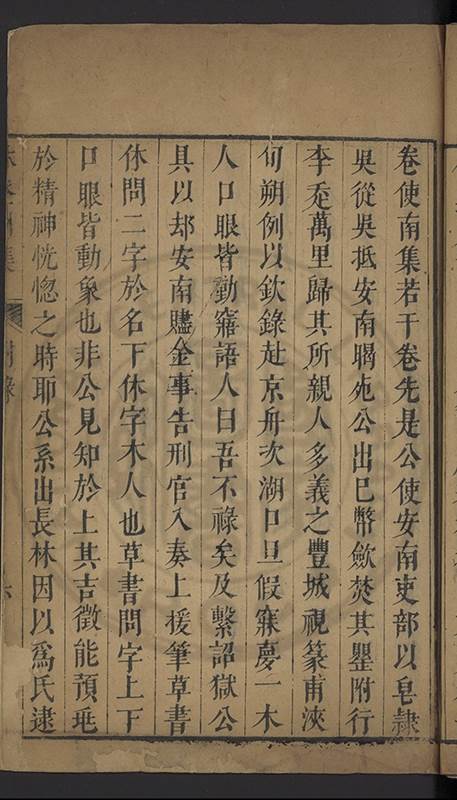 卷使南集若干卷先是公使安南吏部以皂隸
吳從吳抵安南暍死公出已幣斂焚其罌附行
李夌萬里歸其所親人多義之豐城視篆甫浹
旬朔例以欽錄赴京舟次湖口旦假寐夢一木
人口眼皆動寤語人曰吾不祿矣及繫詔獄公
具以却安南贐金事告刑官入奏上援筆草書
休問二字於名下休字木人也草書問字上下
口眼皆動象也非公見知於上其吉徵能預兆
於精神恍惚之時耶公系出長林因以爲氏逮